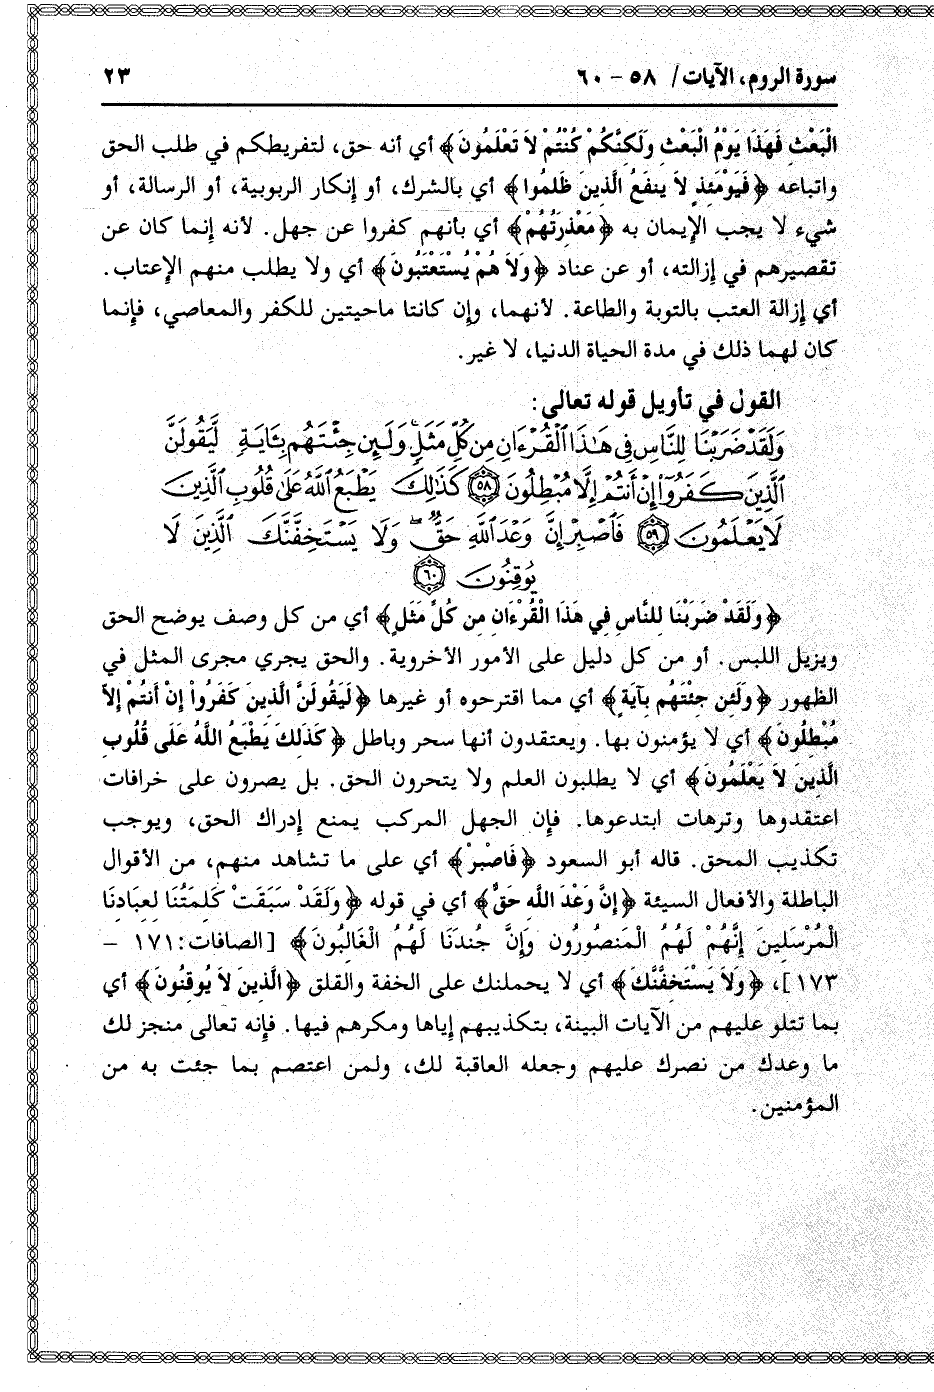 سورة الروم، الآيات/ ٥٨ - ٦٠ ٢٣
الْبَعْثِ فَهَذَا يَوْمُ الْبَعْثِ وَلَكِنَّكُمْ كُنْتُمْ لاَ تَعْلَمُونَ﴾ أي أنه حق، لتفريطكم في طلب الحق
واتباعه ﴿فَيَوْمَئِذٍ لاَ يَنفَعُ الَّذِينَ ظَلَمُوا﴾ أي بالشرك، أو إنكار الربوبية، أو الرسالة، أو
شيء لا يجب الإيمان به ﴿مَعْذِرَتُهُمْ﴾ أي بأنهم كفروا عن جهل. لأنه إنما كان عن
تقصيرهم في إزالته، أو عن عناد ﴿وَلاَ هُمْ يُسْتَعْتَبُونَ﴾ أي ولا يطلب منهم الإعتاب.
أي إزالة العتب بالتوبة والطاعة. لأنهما، وإن كانتا ماحيتين للكفر والمعاصي، فإنما
كان لهما ذلك في مدة الحياة الدنيا، لا غير.
القول في تأويل قوله تعالى:
وَلَقَدْ ضَرَبْنَا لِلنَّاسِ فِي هَٰذَا ٱلْقُرْءَانِ مِن كُلِّ مَثَلٍ وَلَئِن جِئْتَهُم بِـَٔايَةٍ لَّيَقُولَنَّ
ٱلَّذِينَ كَفَرُوٓا۟ إِنْ أَنتُمْ إِلَّا مُبْطِلُونَ ٥٨ كَذَٰلِكَ يَطْبَعُ ٱللَّهُ عَلَىٰ قُلُوبِ ٱلَّذِينَ
لَا يَعْلَمُونَ ٥٩ فَٱصْبِرْ إِنَّ وَعْدَ ٱللَّهِ حَقٌّ وَلَا يَسْتَخِفَّنَّكَ ٱلَّذِينَ لَا
يُوقِنُونَ ٦٠
﴿وَلَقَدْ ضَرَبْنَا لِلنَّاسِ فِي هَذَا الْقُرْءَانِ مِن كُلِّ مَثَلٍ﴾ أي من كل وصف يوضح الحق
ويزيل اللبس. أو من كل دليل على الأمور الأخروية. والحق يجري مجرى المثل في
الظهور ﴿وَلَئِن جِئْتَهُم بِآيَةٍ﴾ أي مما اقترحوه أو غيرها ﴿لَيَقُولَنَّ الَّذِينَ كَفَرُواْ إِنْ أَنتُمْ إِلاَّ
مُبْطِلُونَ﴾ أي لا يؤمنون بها. ويعتقدون أنها سحر وباطل ﴿كَذَلِكَ يَطْبَعُ اللَّهُ عَلَى قُلُوبِ
الَّذِينَ لاَ يَعْلَمُونَ﴾ أي لا يطلبون العلم ولا يتحرون الحق. بل يصرون على خرافات
اعتقدوها وترهات ابتدعوها. فإن الجهل المركب يمنع إدراك الحق، ويوجب
تكذيب المحق. قاله أبو السعود ﴿فَاصْبِرْ﴾ أي على ما تشاهد منهم، من الأقوال
الباطلة والأفعال السيئة ﴿إِنَّ وَعْدَ اللَّهِ حَقٌّ﴾ أي في قوله ﴿وَلَقَدْ سَبَقَتْ كَلِمَتُنَا لِعِبَادِنَا
الْمُرْسَلِينَ إِنَّهُمْ لَهُمُ الْمَنصُورُون وَإِنَّ جُندَنَا لَهُمُ الْغَالِبُونَ﴾ [الصافات: ١٧١ -
١٧٣]، ﴿وَلاَ يَسْتَخِفَّنَّكَ﴾ أي لا يحملنك على الخفة والقلق ﴿الَّذِينَ لاَ يُوقِنُونَ﴾ أي
بما تتلو عليهم من الآيات البينة، بتكذيبهم إياها ومكرهم فيها. فإنه تعالى منجز لك
ما وعدك من نصرك عليهم وجعله العاقبة لك، ولمن اعتصم بما جئت به من
المؤمنين.